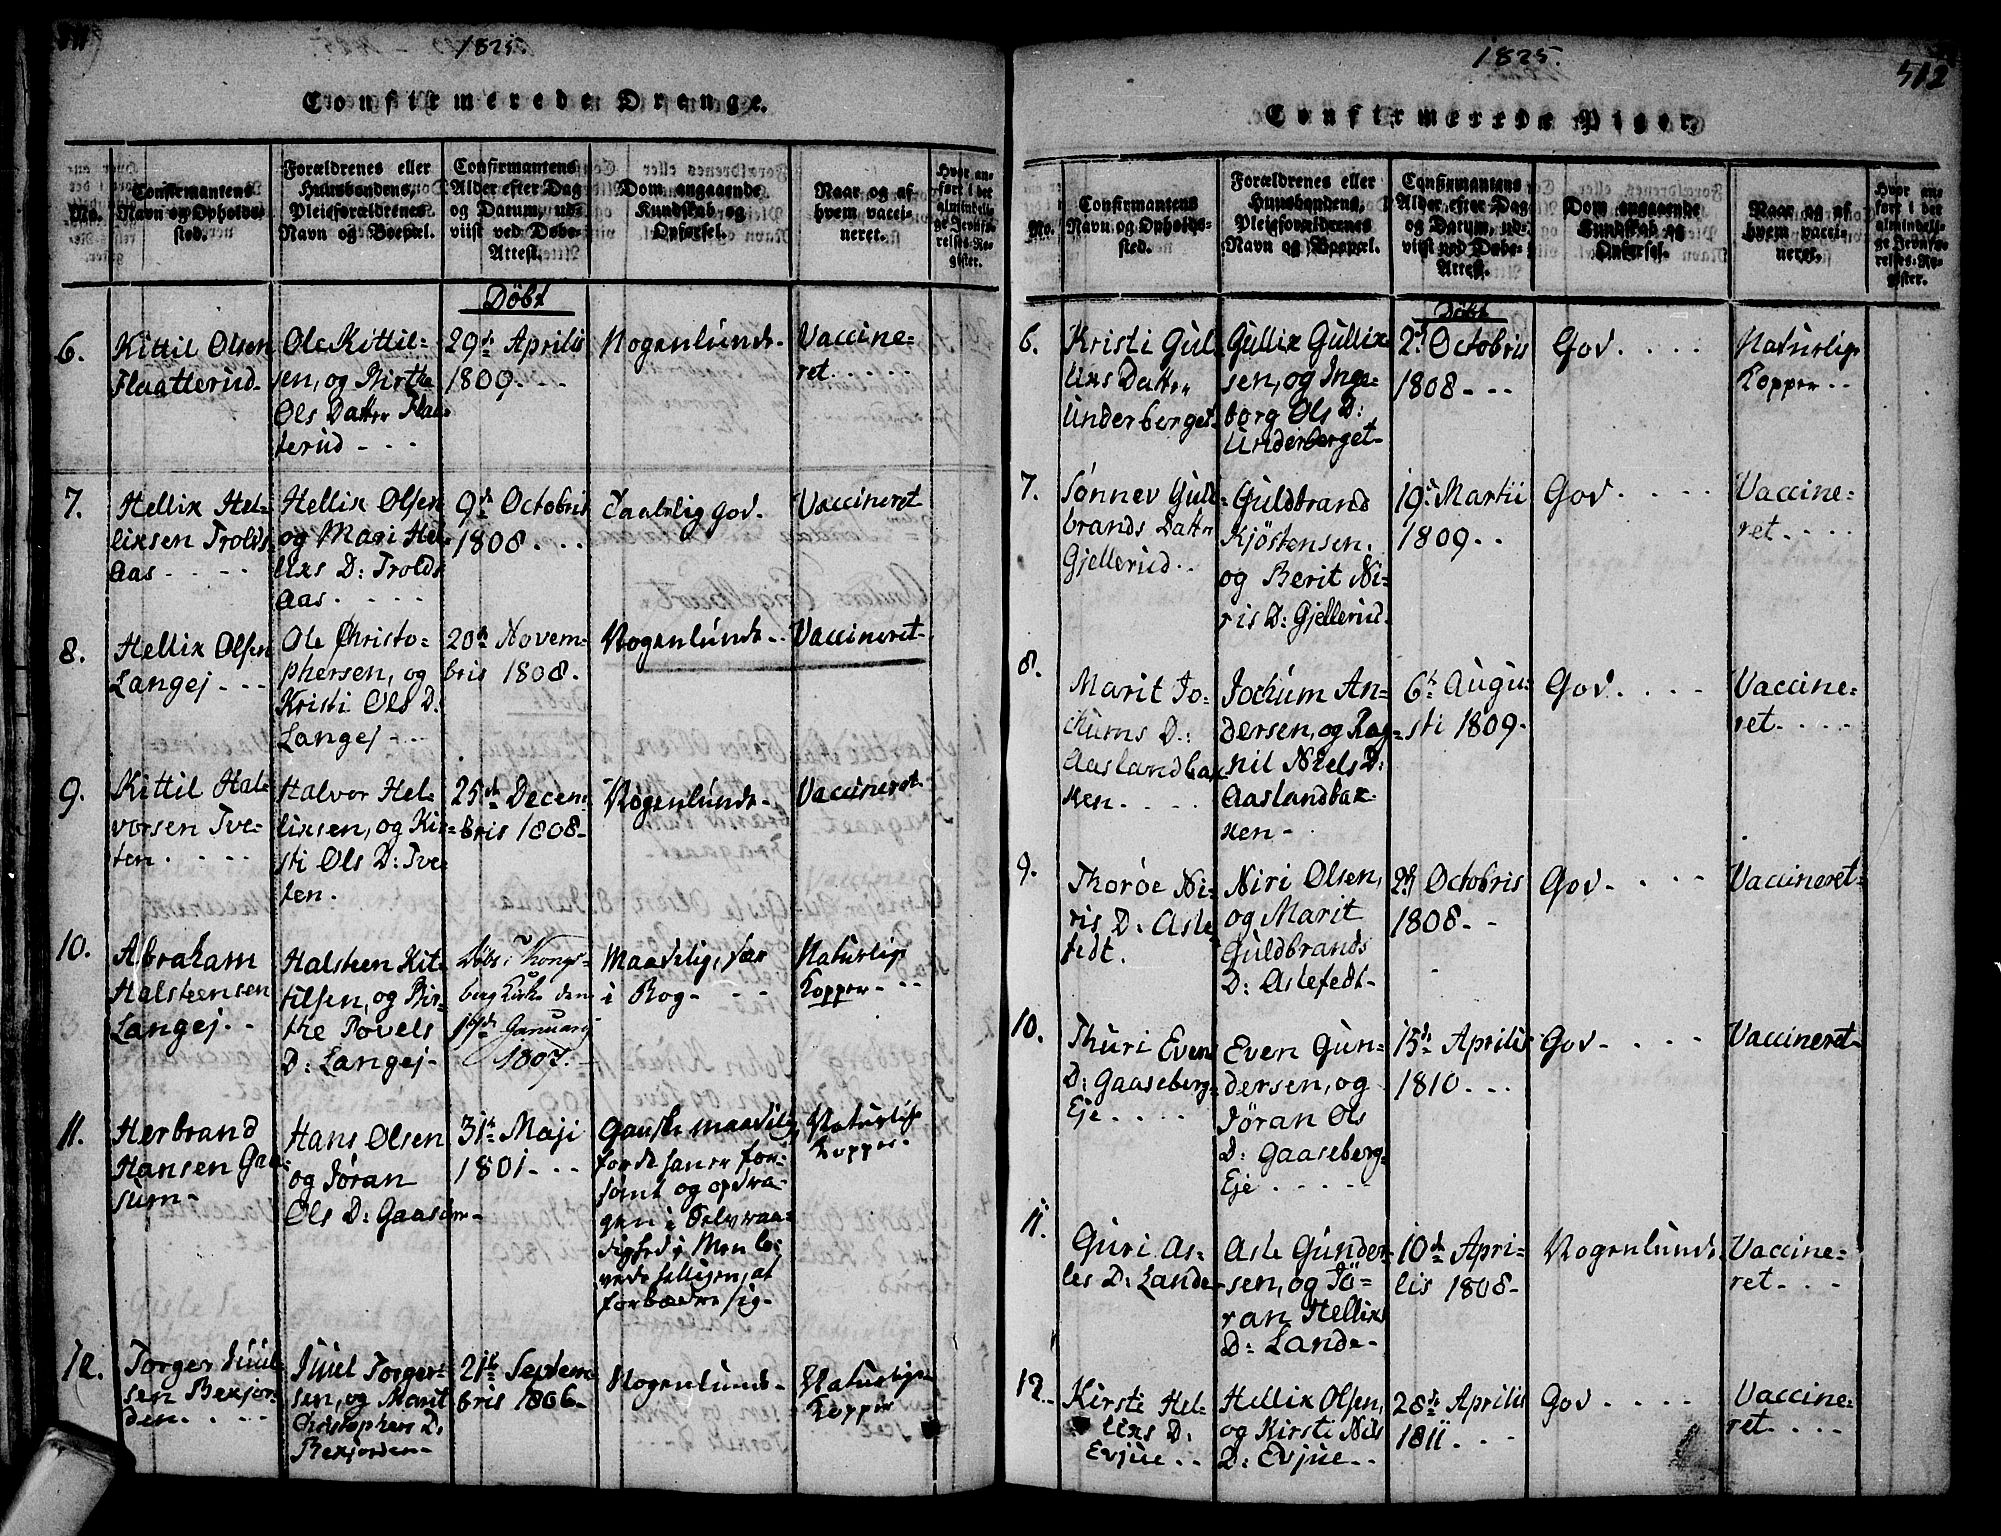 1825.
Confirmerede Drenge.
No.
Confirmantens
Navn og Opholds-
sted.
Forældrenes eller
Huusbondens,
Pleieforældrenes
Navn og Boepæl.
Confirmantens
Alder efter Dag
og Datum, ud-
viist ved Døbe-
Attest.
Dom angaaende
Kundskab og
Opførsel.
Naar og af
hvem vacci-
neret.
Hvor an-
ført i det
almindeli-
ge Jevnfø-
relses-Re-
gister.
Döbt
6.
Kittil Olsen
Flaatterud-
Ole Kittil-
sen, og Birthe
Ols Datter Flaa-
terud - - -
29de Aprilis
1809 - - -
Nogenlunde-
Vaccine-
ret - - - - -
7.
Hellix Hel-
lixsen Trolds-
Aas - - - -
Hellix Olsen
og Mari Hel-
lixs D: Trolds
Aas - - - -
9de Octobris
1808 - - -
Taalelig god.
Vaccineret
8.
Hellix Olsen
Langej - - -
Ole Christo-
phersen, og
Kristi Ols D:
Langej - - -
20de Novem-
bris 1808.
Nogenlunde-
Vaccineret-
9.
Kittil Hal-
vorsen Tve-
ten - - - -
Halvor Hel-
lixsen, og Kir-
sti Ols D: Tve-
ten.
25de Decem-
bris 1808-
Nogenlunde-
Vaccineret-
10.
Abraham
Halsteensen
Langej - -
Halsteen Kit-
tilsen, og Bir-
the Povels
D: Langej-
Döbt i Kongs-
berg Kirke den
Januarj
1807.
Maadelig, svar
i Bog - - -
Naturlige
Kopper - - -
11.
Herbrand
Hansen Gaa-
sum-
Hans Olsen
og Jöran
Ols D: Gaasum-
31te Maji
1801 - - -
Ganske maadelig
fordi han er for-
sömt og opdra-
gen i Selvraa-
dighed; Men lo-
vede helligen, at
forbædre sig-
Naturlige
Kopper-
12.
Torger Juul-
sen Bexjor-
den - - - -
Juul Torger-
sen, og Marit
Christophers D:
Bexjorden-
21de Septem-
bris 1806-
Nogenlunde-
Naturlige
Kopper
1825.
512
Confirmerede Piger.
No.
Confirmantens
Navn og Opholds-
sted.
Forældrenes eller
Huusbondens,
Pleieforældrenes
Navn og Boepæl.
Confirmantens
Alder efter Dag
og Datum, ud-
viist ved Døbe-
Attest.
Dom angaaende
Kundskab og
Opførsel.
Naar og af
hvem vacci-
neret.
Hvor an-
ført i det
almindeli-
ge Jevnfø-
relses-Re-
gister.
Döbt
6.
Kristi Gul-
lixs Datter
Underberget-
Gullix Gullix-
sen, og Inge-
borg Ols D:
Underberget-
2de Octobris
1808 - - -
God - - - -
Naturlige
Kopper - -
7.
Sönnev Guld-
brands Datter
Gjellerud - -
Guldbrand
Kjöstensen,
og Berit Ni-
ris D: Gjellerud.
19de Martii
1809 - -
God - - - -
Vaccine-
ret - - - -
8.
Marit Jo-
chums D:
Aaslandbax-
xen - - - -
Jochum An-
dersen, og Rag-
nil Niels D:
Aaslandbax-
xen -
6te Augu-
sti 1809-
God - - - -
Vaccine-
ret - - - -
9.
Thoröe Ni-
ris D: Asle-
fedt.
Niri Olsen,
og Marit
Guldbrands
D: Aslefedt-
Octobris
1808 - -
God - - - -
Vaccineret-
10.
Thuri Evens
D: Gaaseberg-
Eje - - - -
Even Gun-
dersen, og
Jöran Ols
D: Gaaseberg-
Eje - - - - -
15de Aprilis
1810 - - -
God - - - -
Vaccineret-
11.
Guri As-
les D: Lande-
Asle Gunder-
sen, og Jö-
ran Hellixs
D: Lande-
10de Apri-
lis 1808-
Nogenlunde
Vaccine-
ret - - -
12.
Kirsti Hel-
lixs D:
Evjue - -
Hellix Olsen,
og Kirsti Nils
D: Evjue - -
28de Aprilis
1811 - - -
God - - - -
Vaccine-
ret - - - -